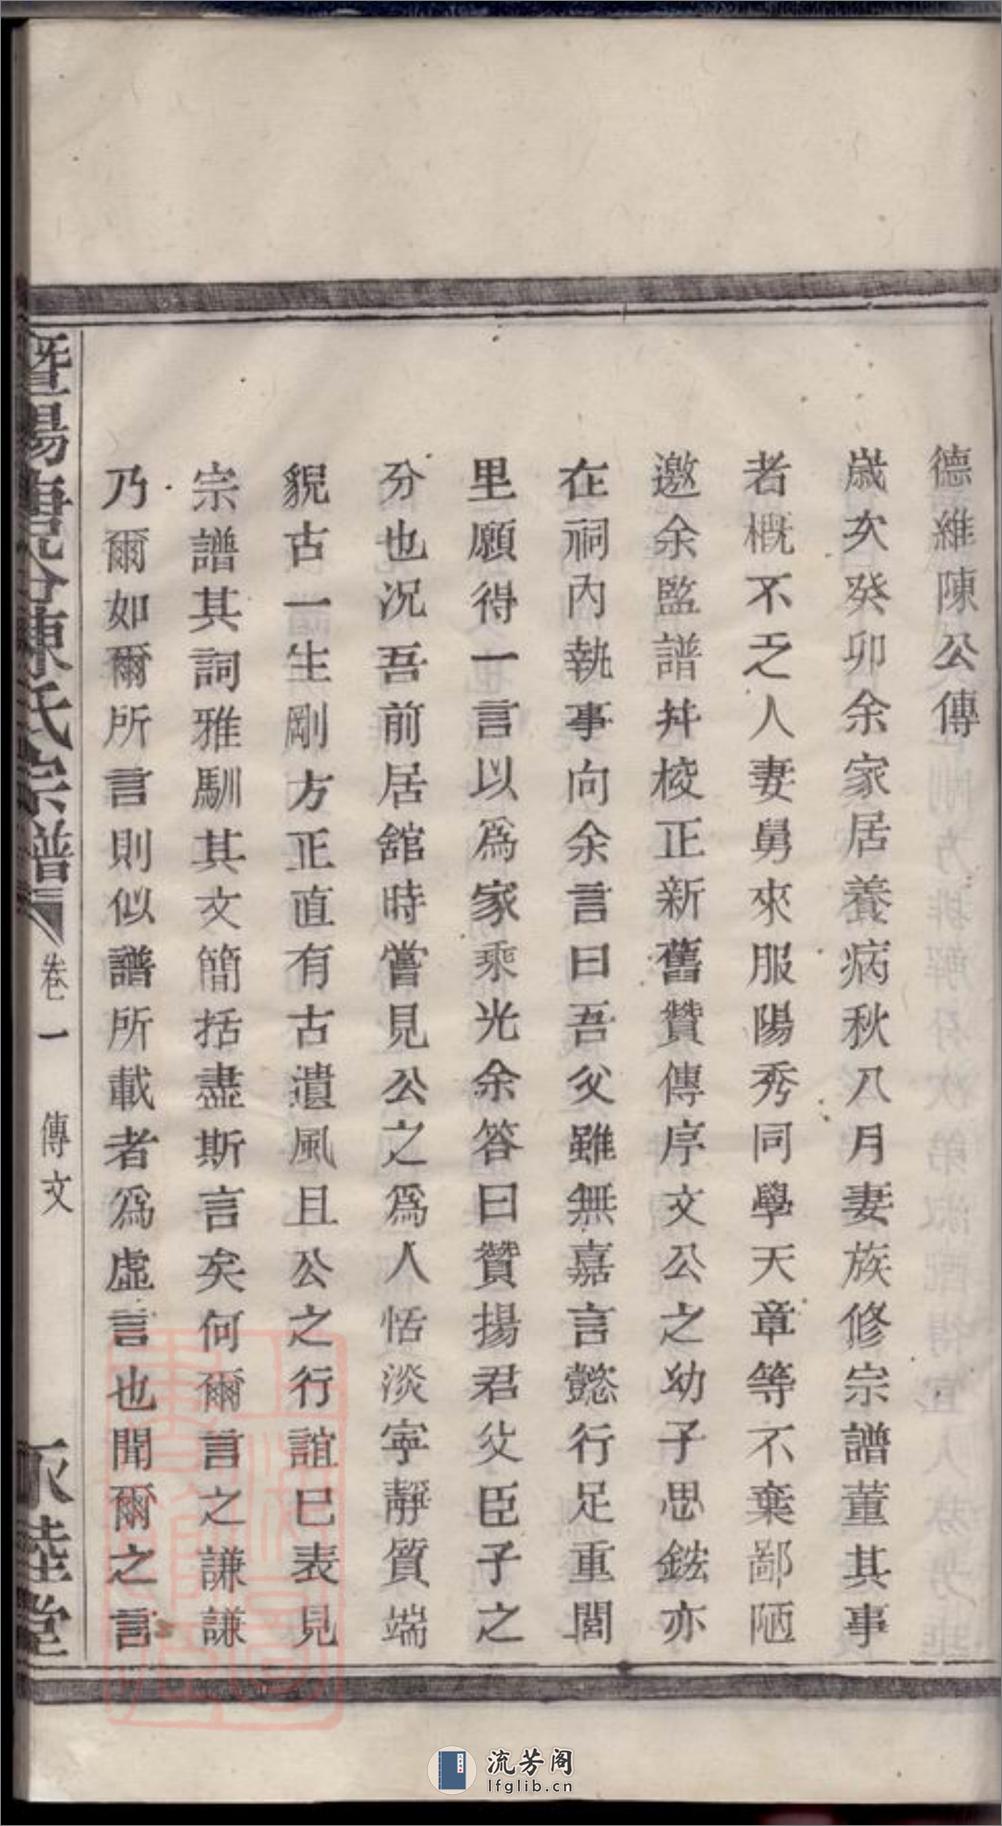 德維陳公傳
歲次癸卯余家居養病秋八月妻族修宗譜董其事
者概不乏人妻舅來服陽秀同學天章等不棄鄙陋
邀余監譜并校正新舊贊傳序文公之幼子思鋐亦
在祠內執事向余言曰吾父雖無嘉言懿行足重閭
里願得一言以爲家乘光余答曰贊揚君父臣子之
分也况吾前居舘時嘗見公之爲人恬淡寧靜質端
貌古一生剛方正直有古遺風且公之行誼已表見
宗譜其詞雅馴其文簡括盡斯言矣何爾言之謙謙
乃爾如爾所言則似譜所載者爲虛言也聞爾之言
暨陽唐谷陳氏宗譜
卷一
傳文
陸堂
流芳阁
lfglib.cn